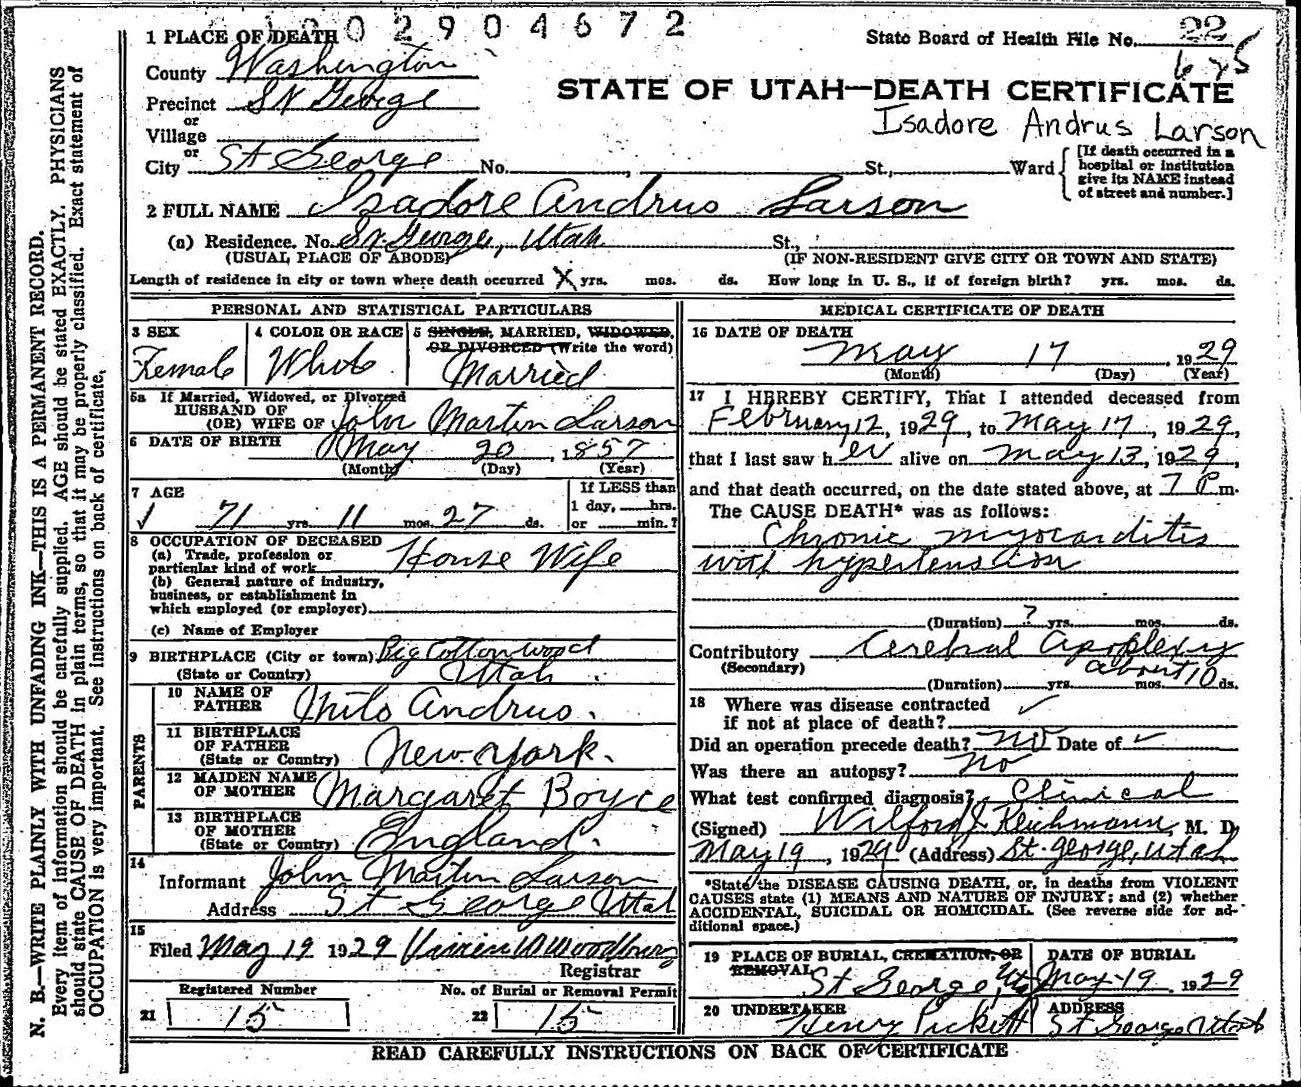 1002904672
1 PLACE OF DEATH
State Board of Health File No. 22
625
County Washington
STATE OF UTAH—DEATH CERTIFICATE
Precinct St George
Isadore Andrus Larson
or
Village
or
City St George No. , St., Ward
[If death occurred in a
hospital or institution
give its NAME instead
of street and number.]
2 FULL NAME Isadore Andrus Larson
(a) Residence. No. St. George, Utah St.,
(USUAL PLACE OF ABODE) (IF NON-RESIDENT GIVE CITY OR TOWN AND STATE)
Length of residence in city or town where death occurred X yrs. mos. ds. How long in U. S., if of foreign birth? yrs. mos. ds.
PERSONAL AND STATISTICAL PARTICULARS
3 SEX
Female
4 COLOR OR RACE
White
5 SINGLE, MARRIED, WIDOWED,
OR DIVORCED (Write the word)
Married
5a If Married, Widowed, or Divorced
HUSBAND OF
(OR) WIFE OF John Martin Larson
6 DATE OF BIRTH May 20, 1857
(Month) (Day) (Year)
7 AGE
√ 71 yrs. 11 mos. 27 ds.
If LESS than
1 day, hrs.
or min.?
8 OCCUPATION OF DECEASED
(a) Trade, profession or
particular kind of work House Wife
(b) General nature of industry,
business, or establishment in
which employed (or employer)
(c) Name of Employer
9 BIRTHPLACE (City or town) Big Cottonwood
(State or Country) Utah.
PARENTS
10 NAME OF
FATHER Milo Andrus.
11 BIRTHPLACE
OF FATHER
(State or Country) New York.
12 MAIDEN NAME
OF MOTHER Margaret Boyce
13 BIRTHPLACE
OF MOTHER
(State or Country) England.
14
Informant John Martin Larson
Address St George Utah
15
Filed May 19 1929
Registrar
Registered Number
21 15
No. of Burial or Removal Permit
22 15
MEDICAL CERTIFICATE OF DEATH
16 DATE OF DEATH
May 17 1929
(Month) (Day) (Year)
17 I HEREBY CERTIFY, That I attended deceased from
February 12, 1929, to May 17, 1929,
that I last saw her alive on May 13, 1929,
and that death occurred, on the date stated above, at 7 P m.
The CAUSE DEATH* was as follows:
Chronic myocarditis
with hypertension
(Duration) ? yrs. mos. ds.
Contributory Cerebral apoplexy
(Secondary)
(Duration) yrs. mos. about 10 ds.
18 Where was disease contracted
if not at place of death? ✓
Did an operation precede death? No Date of ✓
Was there an autopsy? no
What test confirmed diagnosis? Clinical
(Signed) Wilford J. Reichmann, M. D.
May 19, 1929 (Address) St. George, Utah
*State the DISEASE CAUSING DEATH, or, in deaths from VIOLENT
CAUSES state (1) MEANS AND NATURE OF INJURY; and (2) whether
ACCIDENTAL, SUICIDAL OR HOMICIDAL. (See reverse side for ad-
ditional space.)
19 PLACE OF BURIAL, CREMATION, OR
REMOVAL St George, Uta
DATE OF BURIAL
May-19 1929
20 UNDERTAKER
Henry Pickett
ADDRESS
St George Utah
READ CAREFULLY INSTRUCTIONS ON BACK OF CERTIFICATE
N. B.—WRITE PLAINLY WITH UNFADING INK—THIS IS A PERMANENT RECORD.
Every item of information should be carefully supplied. AGE should be stated EXACTLY. PHYSICIANS
should state CAUSE OF DEATH in plain terms, so that it may be properly classified. Exact statement of
OCCUPATION is very important. See instructions on back of certificate.